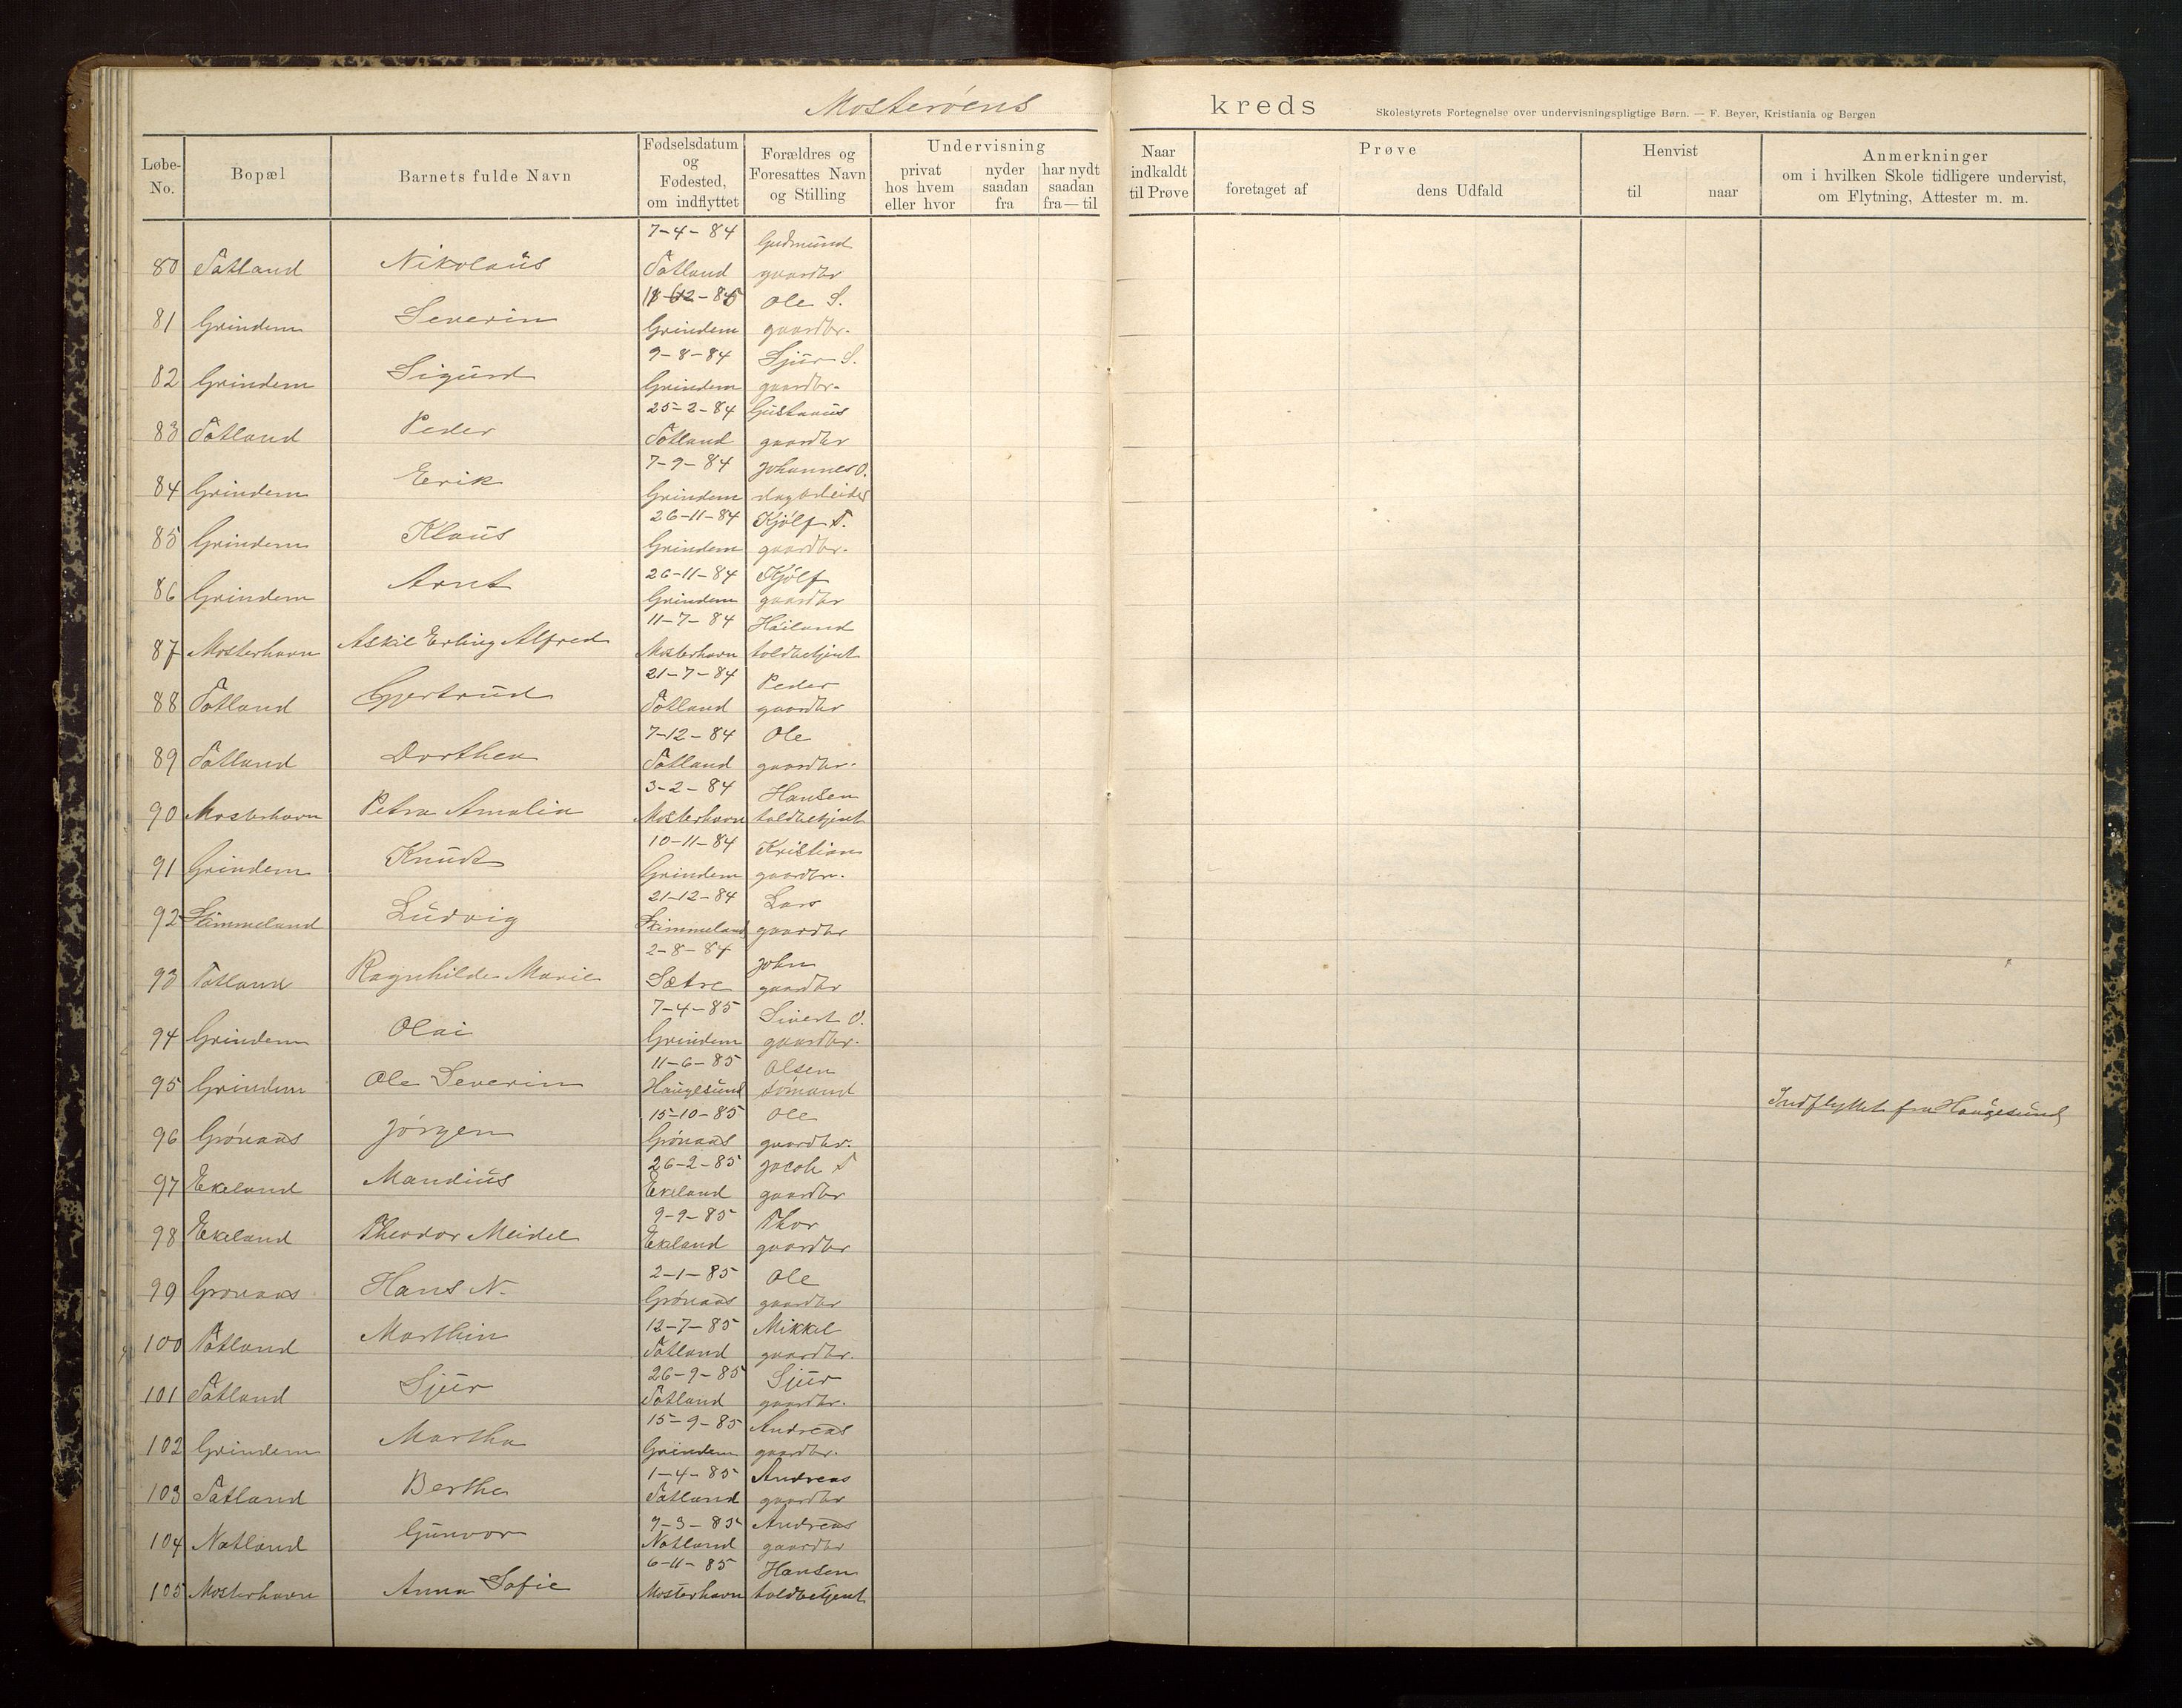 Mosterøens kreds
Skolestyrets Fortegnelse over undervisningspligtige Børn. — F. Beyer, Kristiania og Bergen
Løbe-No. Bopæl Barnets fulde Navn Fødselsdatum og Fødested, om indflyttet Forældres og Foresattes Navn og Stilling Undervisning privat hos hvem eller hvor nyder saadan fra har nydt saadan fra—til Naar indkaldt til Prøve Prøve foretaget af dens Udfald Henvist til naar Anmerkninger om i hvilken Skole tidligere undervist, om Flytning, Attester m. m.
7-4-84 Gudmund
80 Totland Nikolaus Totland gaardbr
12-85 Ole S.
81 Grindem Severin Grindem gaardbr.
9-8-84 Sjur S.
82 Grindem Sigurd Grindem gaardbr.
25-2-84 Gustavus
83 Totland Peder Totland gaardbr
7-9-84 Johannes O.
84 Grindem Erik Grindem dagarbeider
26-11-84 Kjølf T.
85 Grindem Klaus Grindem gaardbr.
26-11-84 Kjølf
86 Grindem Arnt Grindem gaardbr
11-7-84 Hailand
87 Mosterhavn Askil Erling Alfred Mosterhavn toldbetjent
21-7-84 Peder
88 Totland Gjertrud Totland gaardbr
7-12-84 Ole
89 Totland Dorthea Totland gaardbr.
3-2-84 Hansen
90 Mosterhavn Petra Amalia Mosterhavn toldbetjent
10-11-84 Kristian
91 Grindem Knudt Grindem gaardbr.
21-12-84 Lars
92 Skimmeland Ludvig Skimmeland gaardbr
2-8-84 John
93 Totland Ragnhilde Marie Sætre gaardbr
7-4-85 Sivert O.
94 Grindem Olai Grindem gaardbr.
11-6-85 Olsen
95 Grindem Ole Severin Haugesund sømand Indflyttet fra Haugesund
15-10-85 Ole
96 Grønaas Jørgen Grønaas gaardbr.
26-2-85 Jacob T
97 Ekeland Mandius Ekeland gaardbr
9-9-85 Thor
98 Ekeland Theodor Meidel Ekeland gaardbr
2-1-85 Ole
99 Grønaas Hans N. Grønaas gaardbr
12-7-85 Mikkel
100 Totland Marthin Totland gaardbr.
26-9-85 Sjur
101 Totland Sjur Totland gaardbr.
15-9-85 Andreas
102 Grindem Martha Grindem gaardbr.
1-4-85 Andreas
103 Totland Berthe Totland gaardbr
9-3-85 Andreas
104 Natland Gunvor Natland gaardbr
6-11-85 Hansen
105 Mosterhavn Anna Sofie Mosterhavn toldbetjent